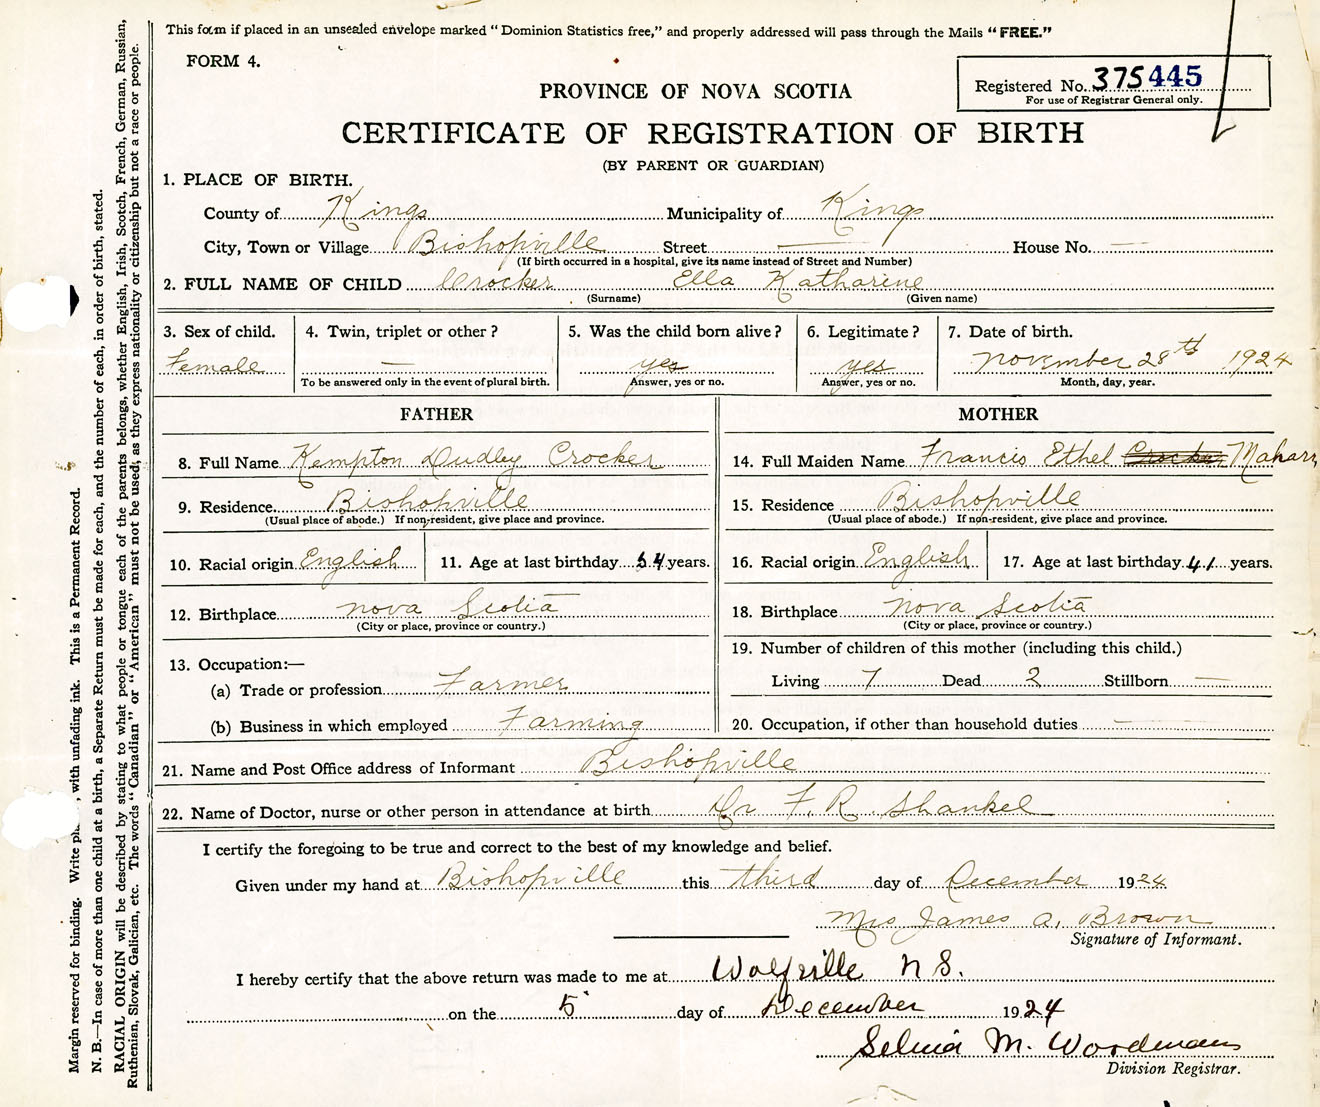 This form if placed in an unsealed envelope marked "Dominion Statistics free," and properly addressed will pass through the Mails "FREE."
FORM 4.
Registered No. 375445
For use of Registrar General only.
PROVINCE OF NOVA SCOTIA
CERTIFICATE OF REGISTRATION OF BIRTH
(BY PARENT OR GUARDIAN)
1. PLACE OF BIRTH.
County of Kings Municipality of Kings
City, Town or Village Bishopville Street — House No. —
(If birth occurred in a hospital, give its name instead of Street and Number)
2. FULL NAME OF CHILD Crocker Ella Katharine
(Surname) (Given name)
3. Sex of child. 4. Twin, triplet or other? 5. Was the child born alive? 6. Legitimate? 7. Date of birth.
Female — yes yes November 28th 1924
To be answered only in the event of plural birth. Answer, yes or no. Answer, yes or no. Month, day, year.
FATHER
8. Full Name Kempton Dudley Crocker
9. Residence Bishopville
(Usual place of abode.) If non-resident, give place and province.
10. Racial origin English 11. Age at last birthday 54 years.
12. Birthplace Nova Scotia
(City or place, province or country.)
13. Occupation:—
(a) Trade or profession Farmer
(b) Business in which employed Farming
MOTHER
14. Full Maiden Name Francis Ethel Crocker
15. Residence Bishopville
(Usual place of abode.) If non-resident, give place and province.
16. Racial origin English 17. Age at last birthday 41 years.
18. Birthplace Nova Scotia
(City or place, province or country.)
19. Number of children of this mother (including this child.)
Living 7 Dead 2 Stillborn —
20. Occupation, if other than household duties —
21. Name and Post Office address of Informant Bishopville
22. Name of Doctor, nurse or other person in attendance at birth Dr F. R. Shankel
I certify the foregoing to be true and correct to the best of my knowledge and belief.
Given under my hand at Bishopville this third day of December 1924
Mrs James A. Brown
Signature of Informant.
I hereby certify that the above return was made to me at Wolfville N S.
on the 5 day of December 1924
Selina M. Woodman
Division Registrar.
Margin reserved for binding. Write , with unfading ink. This is a Permanent Record.
N. B.—In case of more than one child at a birth, a Separate Return must be made for each, and the number of each, in order of birth, stated.
RACIAL ORIGIN will be described by stating to what people or tongue each of the parents belongs, whether English, Irish, Scotch, French, German, Russian,
Ruthenian, Slovak, Galician, etc. The words "Canadian" or "American" must not be used, as they express nationality or citizenship but not a race or people.